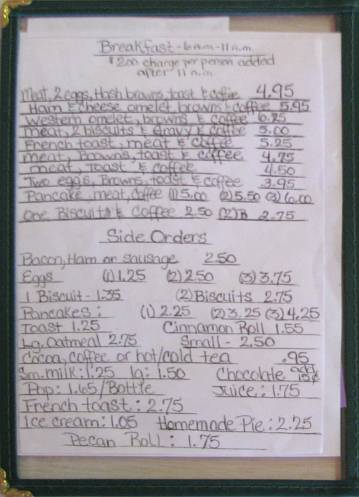 Breakfast - 6 a.m - 11 a.m.
$2.00 charge per person added
after 11 a.m.
Meat, 2 eggs, Hash browns, toast & coffee 4.95
Ham & cheese omelet browns & coffee 5.95
Western omelet, browns & coffee 6.25
Meat, 2 biscuits & gravy & coffee 5.00
French toast, meat & coffee 5.25
Meat, Browns, toast & coffee 4.75
Meat, Toast & coffee 4.50
Two eggs, Browns, toast & coffee 3.95
Pancake, meat, coffee (1) 5.00 (2) 5.50 (3) 6.00
One Biscuits & Coffee 2.50 (2) 2.75
Side Orders
Bacon, Ham or sausage 2.50
Eggs (1) 1.25 (2) 2.50 (3) 3.75
1 Biscuit - 1.35 (2) Biscuits 2.75
Pancakes: (1) 2.25 (2) 3.25 (3) 4.25
Toast 1.25 Cinnamon Roll 1.55
Lg. Oatmeal 2.75 Small - 2.50
Cocoa, coffee or hot/cold tea .95
Sm. milk: 1.25 lg: 1.50 Chocolate add 15¢
Pop: 1.65/Bottle Juice: 1.75
French toast: 2.75
Ice cream: 1.05 Homemade Pie: 2.25
Pecan Roll: 1.75